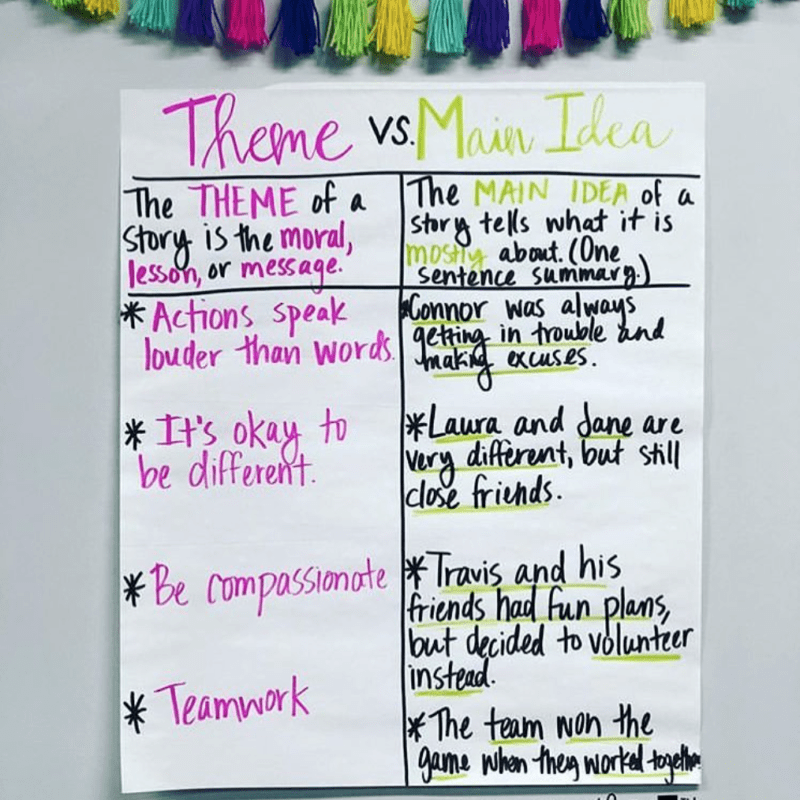 Theme vs. Main Idea
The THEME of a
story is the moral,
lesson, or message.
The MAIN IDEA of a
story tells what it is
mostly about. (One
sentence summary.)
* Actions speak
louder than words.
*Connor was always
getting in trouble and
making excuses.
* It's okay to
be different.
*Laura and Jane are
very different, but still
close friends.
*Be compassionate
*Travis and his
friends had fun plans,
but decided to volunteer
instead.
* Teamwork
*The team won the
game when they worked together